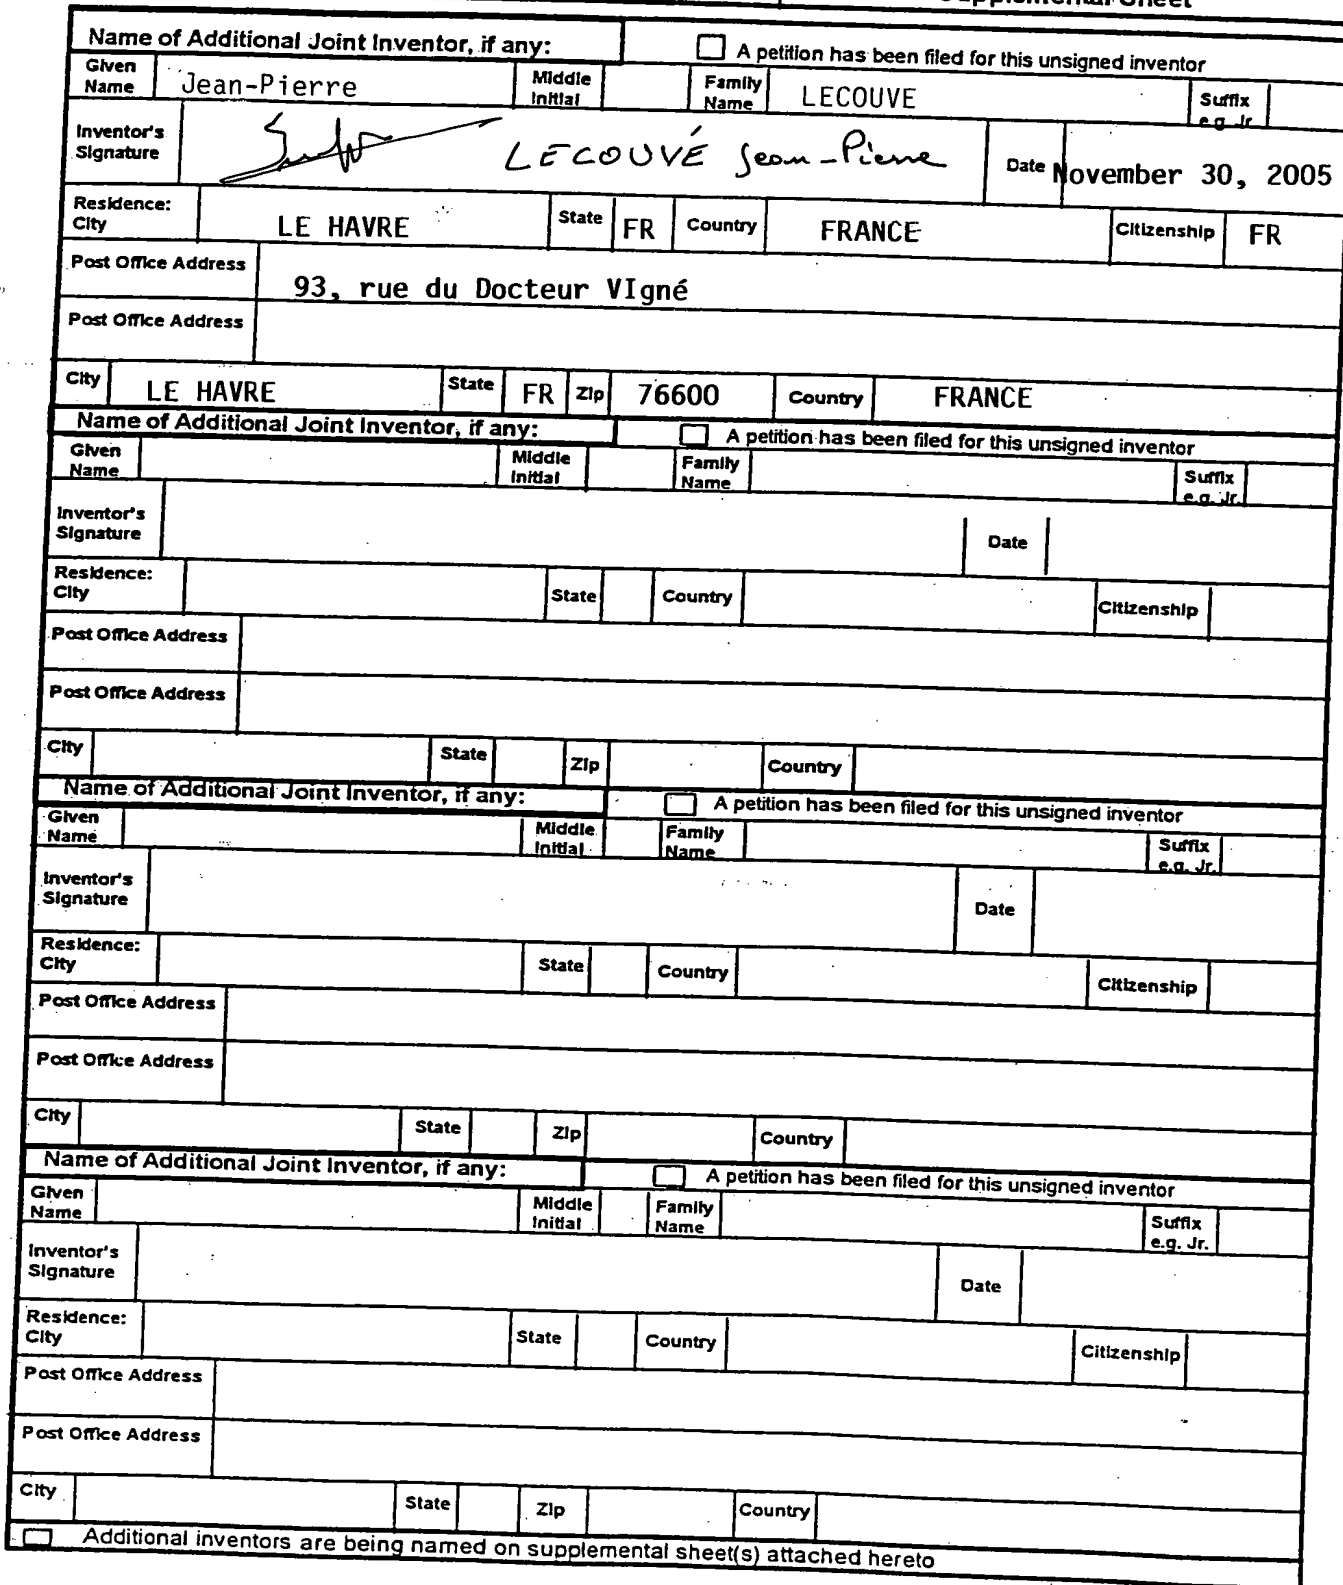 Supplemental Sheet
Name of Additional Joint Inventor, if any: A petition has been filed for this unsigned inventor
Given Name Jean-Pierre Middle Initial Family Name LECOUVE Suffix e.g. Jr.
Inventor's Signature LECOUVÉ Jean-Pierre Date November 30, 2005
Residence: City LE HAVRE State FR Country FRANCE Citizenship FR
Post Office Address 93, rue du Docteur VIgné
Post Office Address
City LE HAVRE State FR Zip 76600 Country FRANCE
Name of Additional Joint Inventor, if any: A petition has been filed for this unsigned inventor
Given Name Middle Initial Family Name Suffix e.g. Jr.
Inventor's Signature Date
Residence: City State Country Citizenship
Post Office Address
Post Office Address
City State Zip Country
Name of Additional Joint Inventor, if any: A petition has been filed for this unsigned inventor
Given Name Middle Initial Family Name Suffix e.g. Jr.
Inventor's Signature Date
Residence: City State Country Citizenship
Post Office Address
Post Office Address
City State Zip Country
Name of Additional Joint Inventor, if any: A petition has been filed for this unsigned inventor
Given Name Middle Initial Family Name Suffix e.g. Jr.
Inventor's Signature Date
Residence: City State Country Citizenship
Post Office Address
Post Office Address
City State Zip Country
Additional inventors are being named on supplemental sheet(s) attached hereto